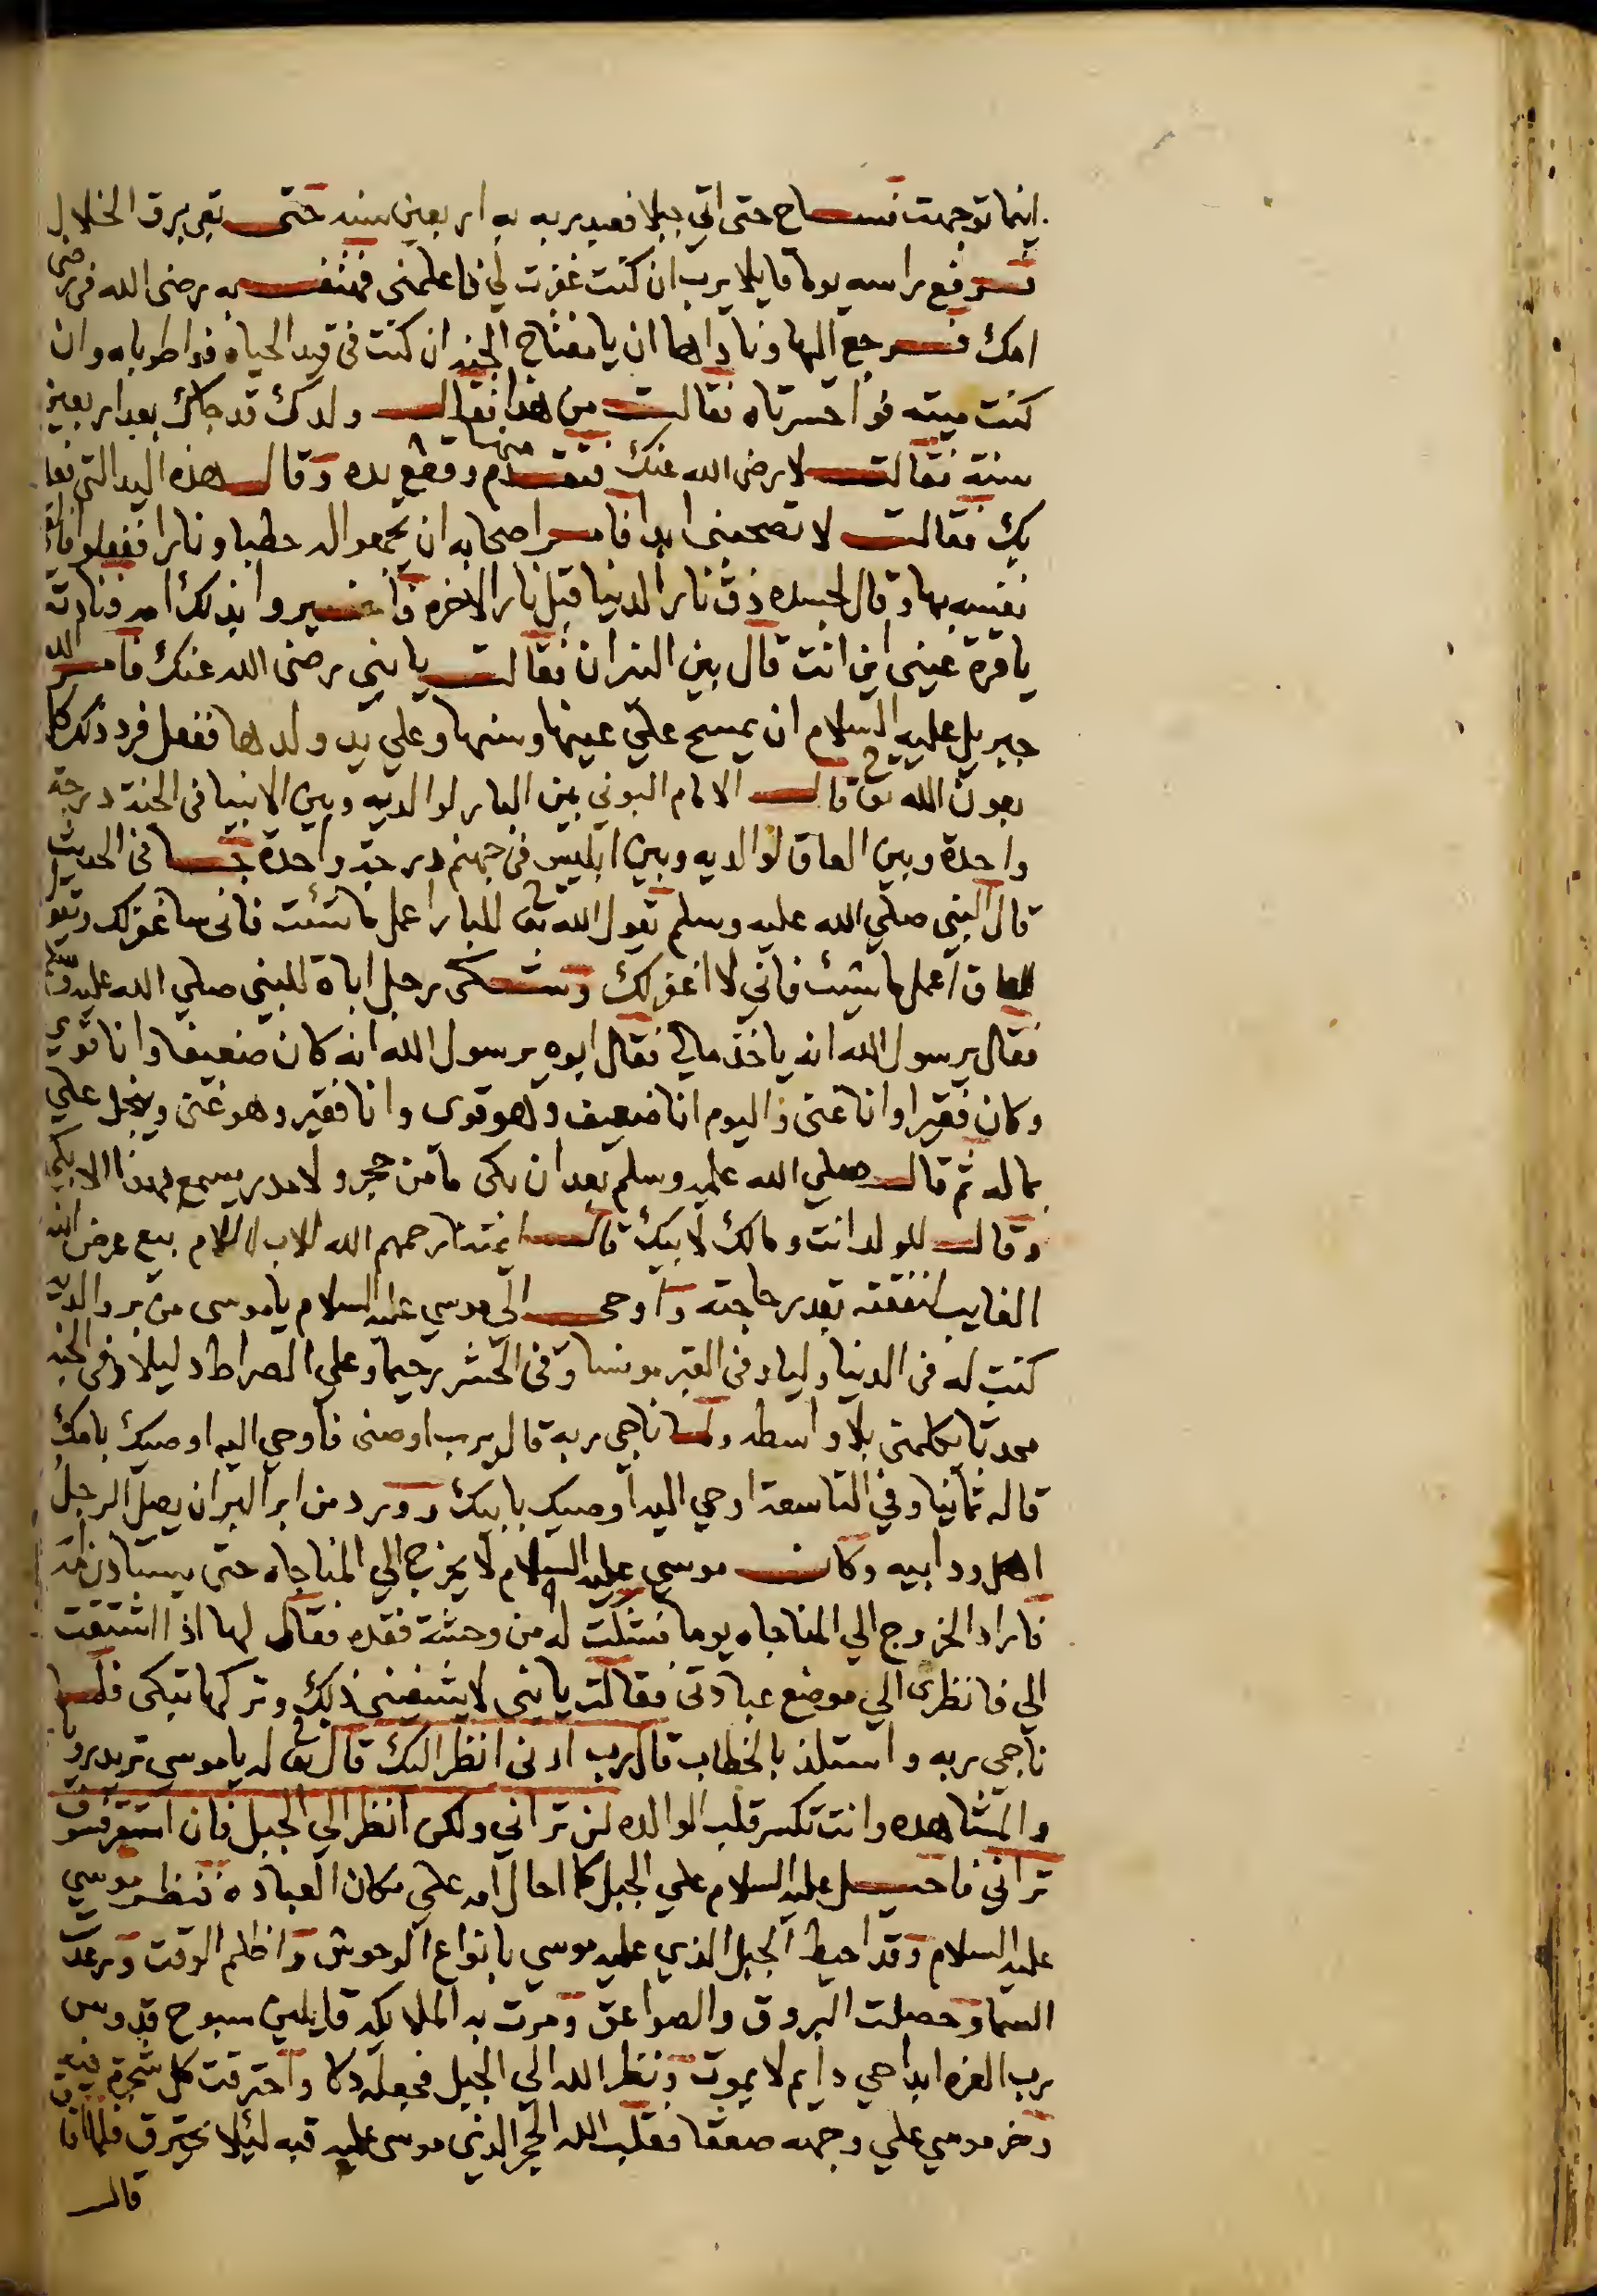 اينما توجهت فساح حتى اتي جبلا فعبد ربه به اربعين سنه حتى بقي برق الخلال
فرفع راسه يوما قايلا يرب ان كنت غفرت لي فاعلمني فهتف به رضى الله في رضى
امك فرجع اليها وناداها ان يا مفتاح الجنه ان كنت في قيد الحياه فواطوباه وان
كنت ميته فواحسرتاه فقالت من هذا فقال ولدك قد جاك بعد اربعين
سنة فقالت لا رضى الله عنك فتقدم منها وقطع يده وقال هذه اليد التي
بك فقالت لا تصحبني ابدا فامر اصحابه ان يجمعوا له حطبا ونارا ففعلوا
نفسه بها وقال لجسده ذق نار الدنيا قبل نار الاخره فاخبروا بذلك امه فنادته
يا قرة عيني اين انت قال بين النيران فقالت يا بني رضى الله عنك فامر الله
جبريل عليه السلام ان يمسح علي عينها وسنها وعلي يد ولدها ففعل فرد ذلك كما
بعون الله تع قال الامام البوني بين البار لوالديه وبين الانبيا في الجنة درجة
واحدة وبين العاق لوالديه وبين ابليس في جهنم درجة واحدة جا في الحديث
قال النبي صلي الله عليه وسلم يقول الله تع للبار اعمل ما شئت فاني ساغفر لك ويقو
للعاق اعمل ما شيت فاني لا اغفر لك وشكى رجل اباه للنبي صلي الله عليه وسلم
فقال يرسول الله انه ياخذ مالي فقال ابوه يرسول الله انه كان ضعيفا وانا قوي
وكان فقيرا وانا غني واليوم انا ضعيف وهو قوى وانا فقير وهو غني ويبخل علي
بماله ثم قال صلي الله عليه وسلم بعد ان بكى ما من حجر ولا مدر يسمع بهذا الا بكي
وقال للولد انت ومالك لابيك قال ايمتنا رحمهم الله للاب لا للام بيع عرض ابنه
الغايب لنفقته بقدر حاجته واوحى الي موسي عليه السلام يا موسى من بر والديه
كنت له في الدنيا وليا وفي القبر مونسا وفي الحشر رحيما وعلي الصراط دليلا وفي الجنه
محدثا يكلمني بلا واسطه ولما ناجي ربه قال يرب اوصني فاوحي اليه اوصيك بامك
قاله ثمانيا وفي التاسعة اوحي اليه اوصيك بابيك وورد من ابر البر ان يصل الرجل
اهل ود ابيه وكان موسي عليه السلام لا يخرج الي المناجاه حتى يستاذن امه
فاراد الخروج الي المناجاه يوما فشكت له من وحشة فقده فقال لها اذا اشتقت
الي فانظري الي موضع عبادتي فقالت يا بني لا يشفيني ذلك وتركها تبكى فلما
ناجي ربه واستلذ بالخطاب قال رب ارني انظر اليك قال تع له يا موسي تريد رويا
والمشاهده وانت تكسر قلب الوالده لن تراني ولكن انظر الي الجبل فان استقر فسوف
تراني فاحيل عليه السلام علي الجبل كما احال امه علي مكان العباده فنظر موسي
عليه السلام وقد احيط الجبل الذي عليه موسي بانواع الوحوش واظلم الوقت ورعدت
السما وحصلت البروق والصواعق ومرت به الملايكه قايلين سبوح قدوس
رب العزه ابدا حي دايم لا يموت ونظر الله الي الجبل فجعله دكا واحترقت كل شجرة فيه
وخر موسي علي وجهه صعقا فقلب الله الحجر الذي موسى عليه قبه لئلا يحترق فلما افا
قال